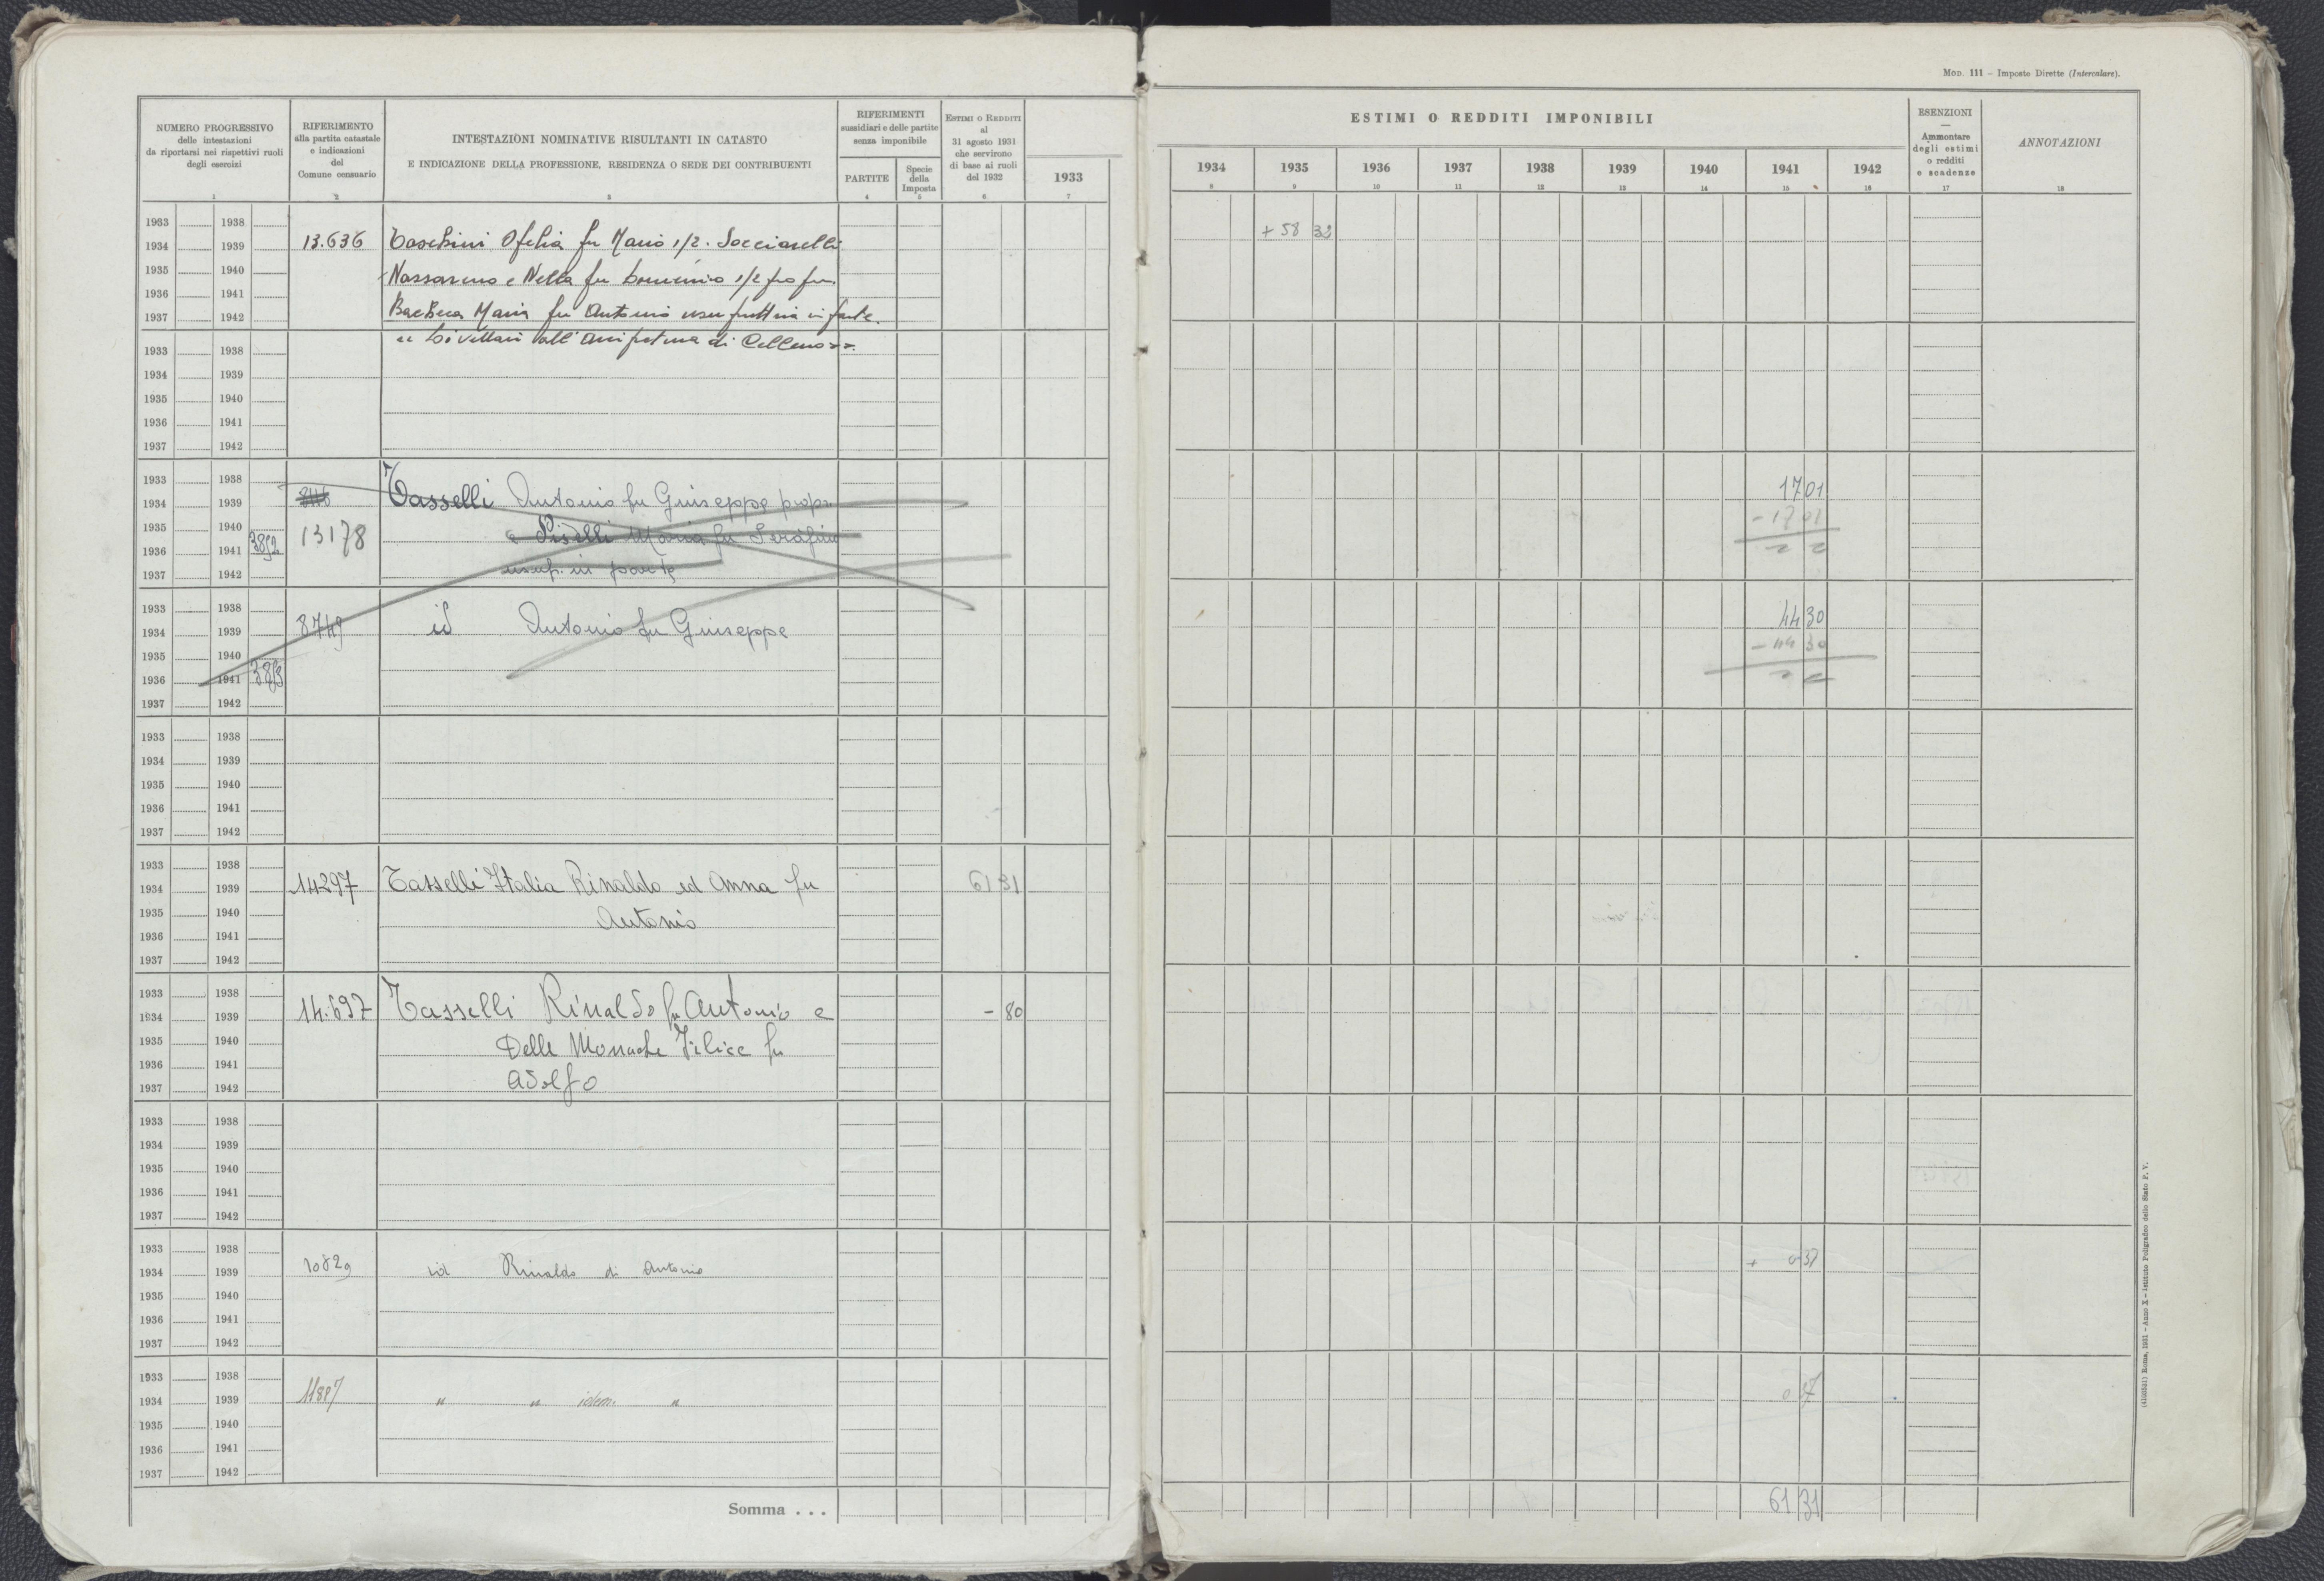 Mod. 111 - Imposte Dirette (Intercalare).
NUMERO PROGRESSIVO
delle intestazioni
da riportarsi nei rispettivi ruoli
degli esercizi
1
RIFERIMENTO
alla partita catastale
e indicazioni
del
Comune censuario
2
INTESTAZIONI NOMINATIVE RISULTANTI IN CATASTO
E INDICAZIONE DELLA PROFESSIONE, RESIDENZA O SEDE DEI CONTRIBUENTI
3
RIFERIMENTI
sussidiari e delle partite
senza imponibile
PARTITE
4
Specie
della
Imposta
5
ESTIMI O REDDITI
al
31 agosto 1931
che servirono
di base ai ruoli
del 1932
6
1933
7
ESTIMI O REDDITI IMPONIBILI
1934 1935 1936 1937 1938 1939 1940 1941 1942
8 9 10 11 12 13 14 15 16
ESENZIONI
—
Ammontare
degli estimi
o redditi
e scadenze
17
ANNOTAZIONI
18
1933 1938
1934 1939 13.636 Taschini Ofelia fu Mario 1/2. Socciarelli + 58 32
1935 1940 Nazzareno e Nella fu Domenico 1/2
1936 1941
1937 1942 Maria fu Antonio in parte.
1933 1938 Livellari all' di Celleno
1934 1939
1935 1940
1936 1941
1937 1942
1933 1938
1934 1939 Tasselli Antonio fu Giuseppe propr. 1701
1935 1940 13178 e Piselli Maria fu Serafino - 1701
1936 1941 3892
1937 1942 usuf. in parte
1933 1938
1934 1939 8749 id Antonio fu Giuseppe 44 30
1935 1940 - 44 30
1936 1941
1937 1942
1933 1938
1934 1939
1935 1940
1936 1941
1937 1942
1933 1938
1934 1939 14297 Tasselli Italia Rinaldo ed Anna fu 61 31
1935 1940 Antonio
1936 1941
1937 1942
1933 1938
1934 1939 14.697 Tasselli Rinaldo fu Antonio e - 80
1935 1940
1936 1941 Delle Monache Felice fu
1937 1942 Adolfo
1933 1938
1934 1939
1935 1940
1936 1941
1937 1942
1933 1938
1934 1939 10829 id Rinaldo di Antonio + 0 37
1935 1940
1936 1941
1937 1942
1933 1938
1934 1939 11887 " " idem. "
1935 1940
1936 1941
1937 1942
Somma . . . 61 31
Roma, 1931 - Anno X - Istituto Poligrafico dello Stato P. V.